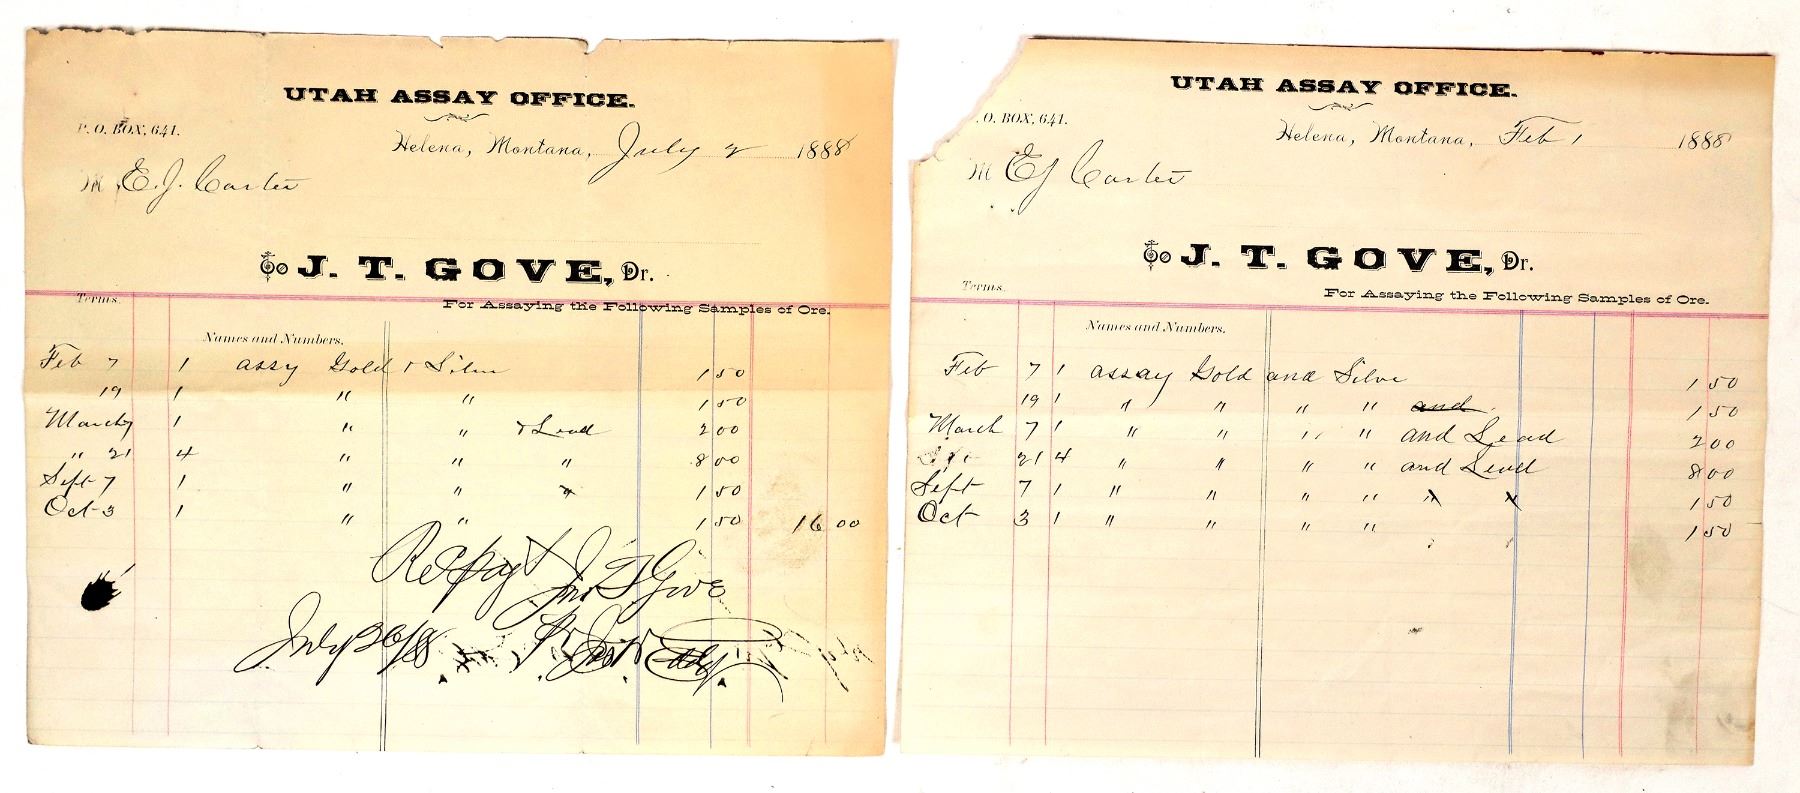 UTAH ASSAY OFFICE.
P. O. BOX, 641.
Helena, Montana, July 2 1888
M E. J. Carter
To J. T. GOVE, Dr.
Terms.
For Assaying the Following Samples of Ore.
Names and Numbers.
Feb 7 1 assy Gold & Silver 1 50
19 1 " " 1 50
March 7 1 " " & Lead 2 00
" 21 4 " " " 8 00
Sept 7 1 " " 1 50
Oct 3 1 " " 1 50 16 00
Recpayt Jno T Gove
July 26/88
UTAH ASSAY OFFICE.
. O. BOX, 641.
Helena, Montana, Feb 1 1888
M E J Carter
To J. T. GOVE, Dr.
Terms.
For Assaying the Following Samples of Ore.
Names and Numbers.
Feb 7 1 assay Gold and Silver 1 50
19 1 " " " " and 1 50
March 7 1 " " " " and Lead 2 00
21 4 " " " " and Lead 8 00
Sept 7 1 " " " " 1 50
Oct 3 1 " " " " 1 50